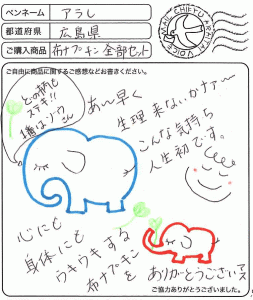 ペンネーム アラレ
都道府県 広島県
ご購入商品 布ナプキン全部セット
MAIL CHIKYU ARATAN VOICE
ご自由に商品に関するご感想などお書きください。
どの柄も
ステキ!!
1番はゾウ
さん
あ〜早く
生理来ないかナァ〜
こんな気持ち
人生初です。
心にも
身体にも
ウキウキする
布ナプキンを
ありがとうございマス
ご協力ありがとうございました。